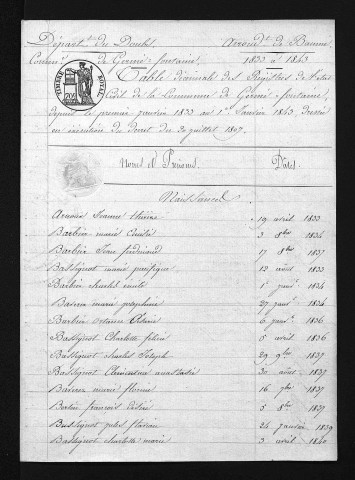 Départ.t du Doubs Arrond.t de Baume
Commune de Germé-fontaine, 1833 à 1843
TIMBRE ROYAL
Table décennale des Registres de l'état
civil de la Commune de Germé-fontaine,
depuis le premier janvier 1833 au 1er Janvier 1843, dressée
en exécution du décret du 20 juillet 1807.
Noms et Prénoms. Dates.
Naissances
Jeanne 19 avril 1833
Barbier marie 3 8bre 1834
Barbier Jean ferdinand 17 8bre 1837
Bassignot marie pacifique 12 août 1833
Barbier charles 1er janvr 1834
marie josephine 27 janvr 1834
Barbier 6 janvr 1836
Bassignot Charlotte 5 avril 1836
Bassignot charles Joseph 29 9bre 1837
Bassignot Clémentine anastasie 30 août 1837
marie 16 7bre 1837
francois 5 8bre 1837
Bassignot jules florian 24 janvier 1839
Bassignot charlotte marie 3 avril 1840